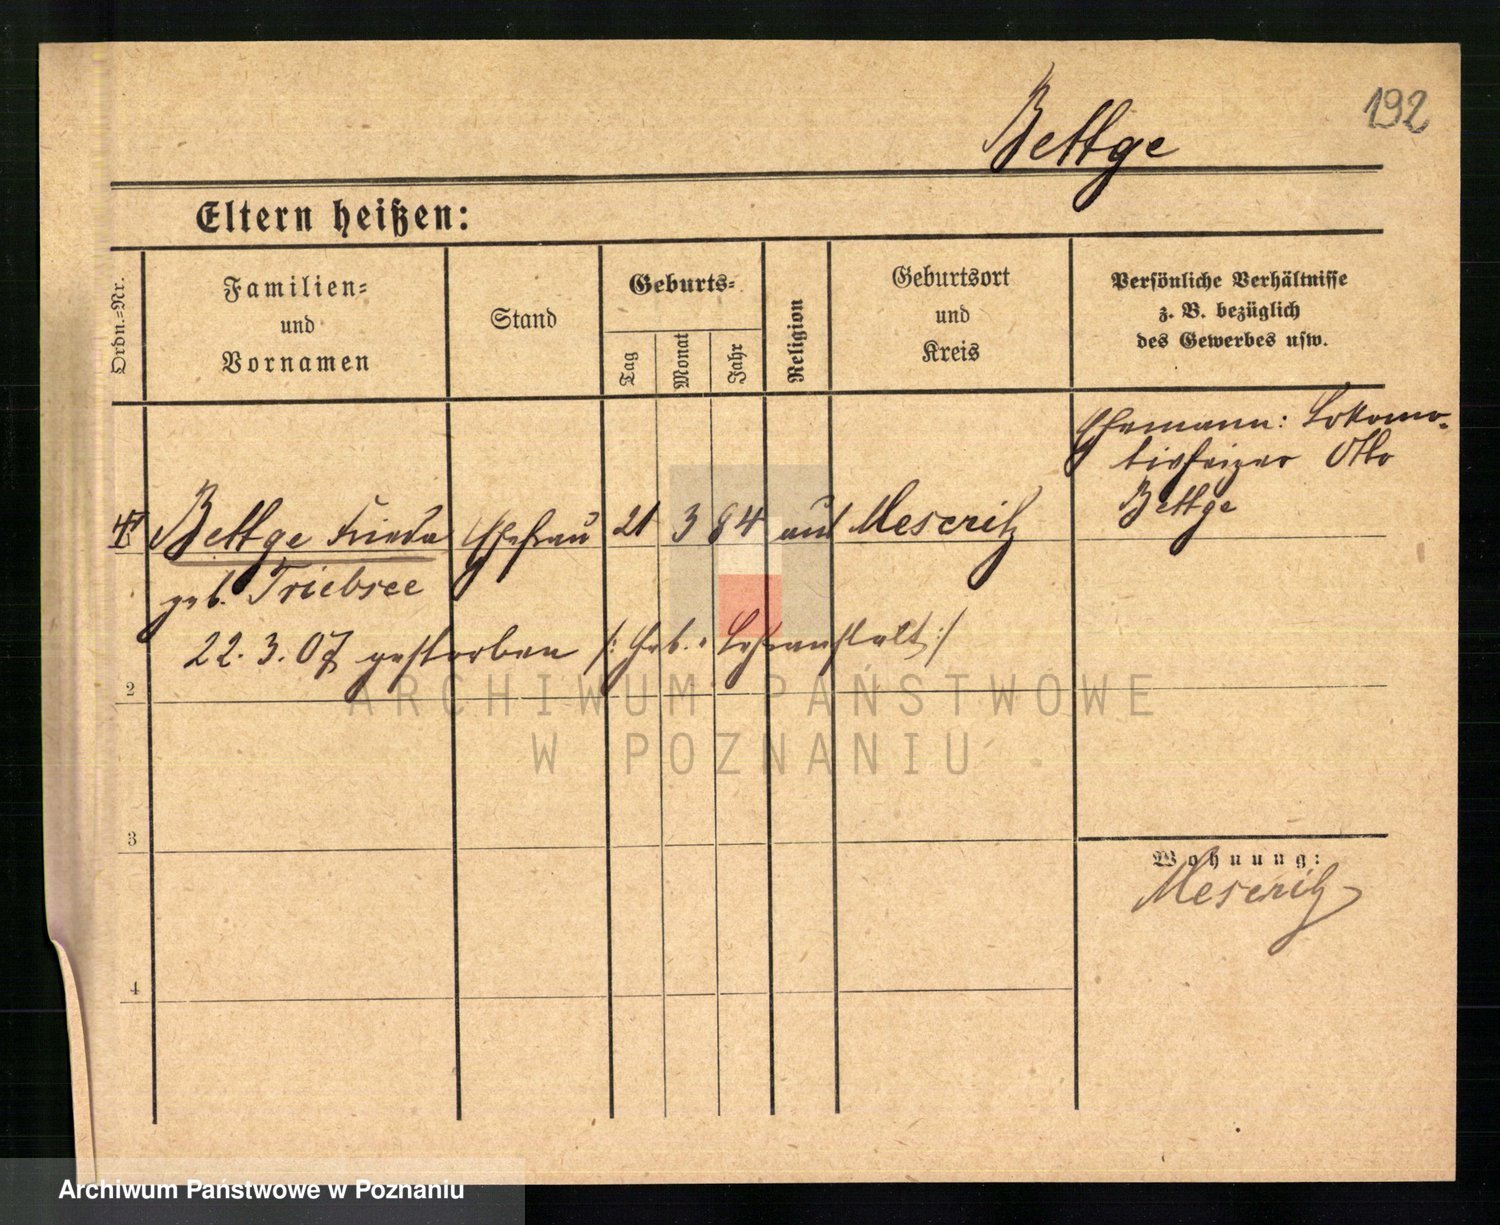 192
Bettge
Eltern heißen:
Ordn.=Nr.
Familien=
und
Vornamen
Stand
Geburts=
Tag
Monat
Jahr
Religion
Geburtsort
und
Kreis
Persönliche Verhältnisse
z. B. bezüglich
des Gewerbes usw.
Ehemann: Lokomo-
tivheizer Otto
Bettge
Bettge Frieda Ehefrau 21 3 84 Meseritz
geb. Triebsee
22. 3. 07 gestorben /: Heb. Lehranstalt :/
2
3
4
Wohnung:
Meseritz
ARCHIWUM PAŃSTWOWE
W POZNANIU
Archiwum Państwowe w Poznaniu